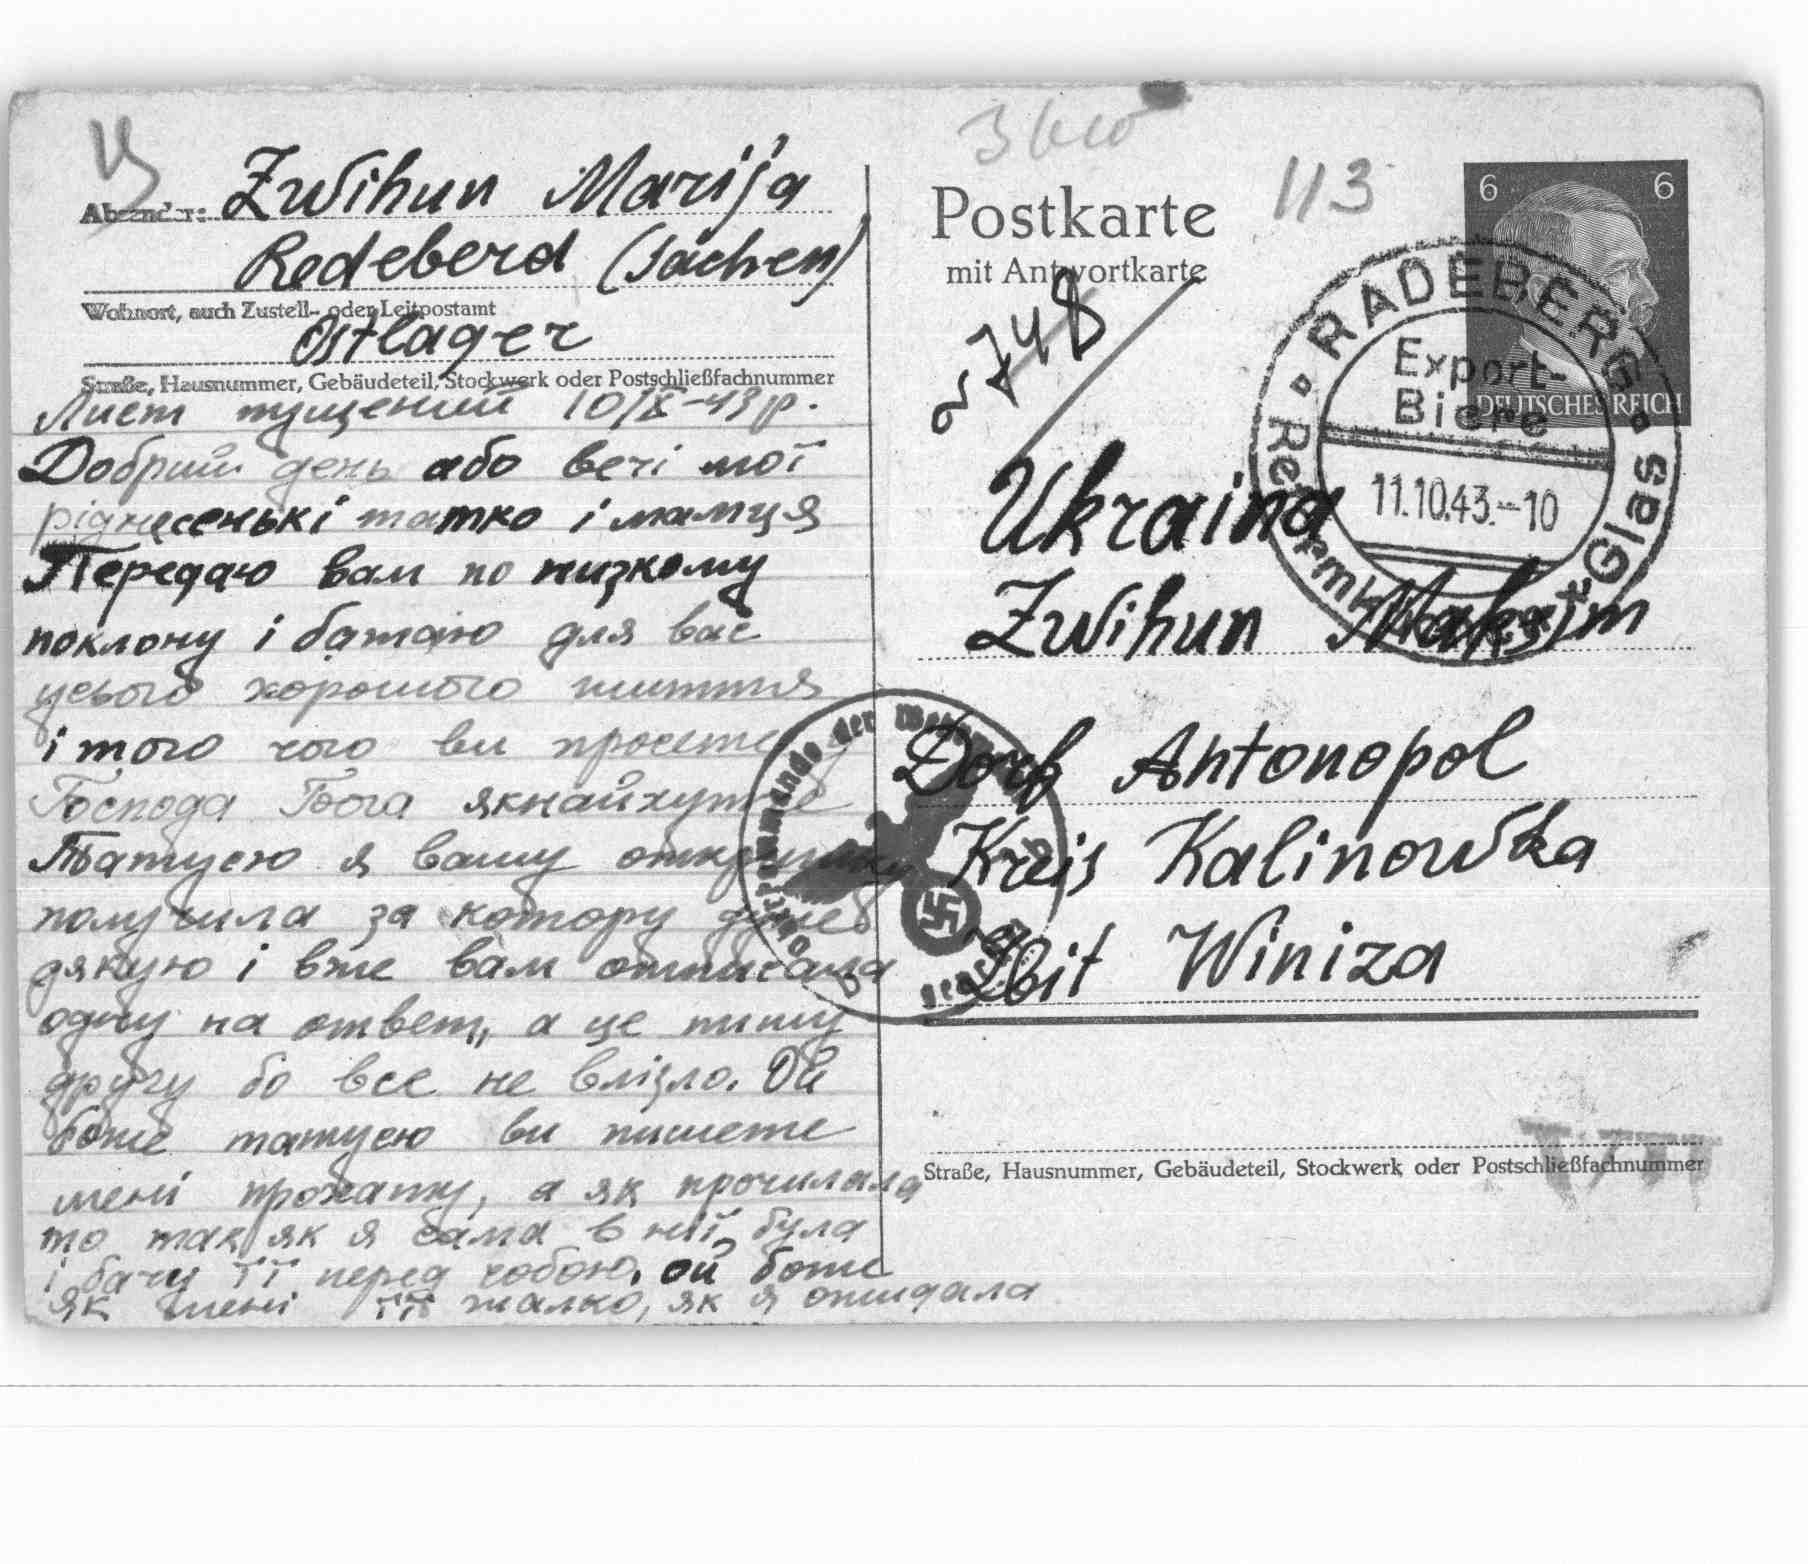 Absender: Zwihun Marija
Redeberd (Sachen)
Wohnort, auch Zustell- oder Leitpostamt
Ostlager
Straße, Hausnummer, Gebäudeteil, Stockwerk oder Postschließfachnummer
Лист пущений 10/X-43 р.
Добрий день або вечі мої
ріднесенькі татко і мамця
Передаю вам по низкому
поклону і бажаю для вас
усього хорошого життя
і того чого ви просете у
Господа Бога якнайхутче
Татусю я вашу откритку
получила за котору дуже
дякую і вже вам отписала
одну на ответ, а це пишу
другу бо все не влізло. Ой
боже татусю ви пишете
мені про хату, а як прочилала
то так як я сама в ній була
і бачу її перед собою. ой боже
як мені її жалко, як я ожидала
113
Postkarte
mit Antwortkarte
748
6 6
DEUTSCHES REICH
RADEBERG
Export-
Biere
11.10.43.-10
Glas
Ukraina
Zwihun Maksim
Dorf Antonopol
Kreis Kalinowka
Bit Winiza
Oberkommando der Wehrmacht
Straße, Hausnummer, Gebäudeteil, Stockwerk oder Postschließfachnummer